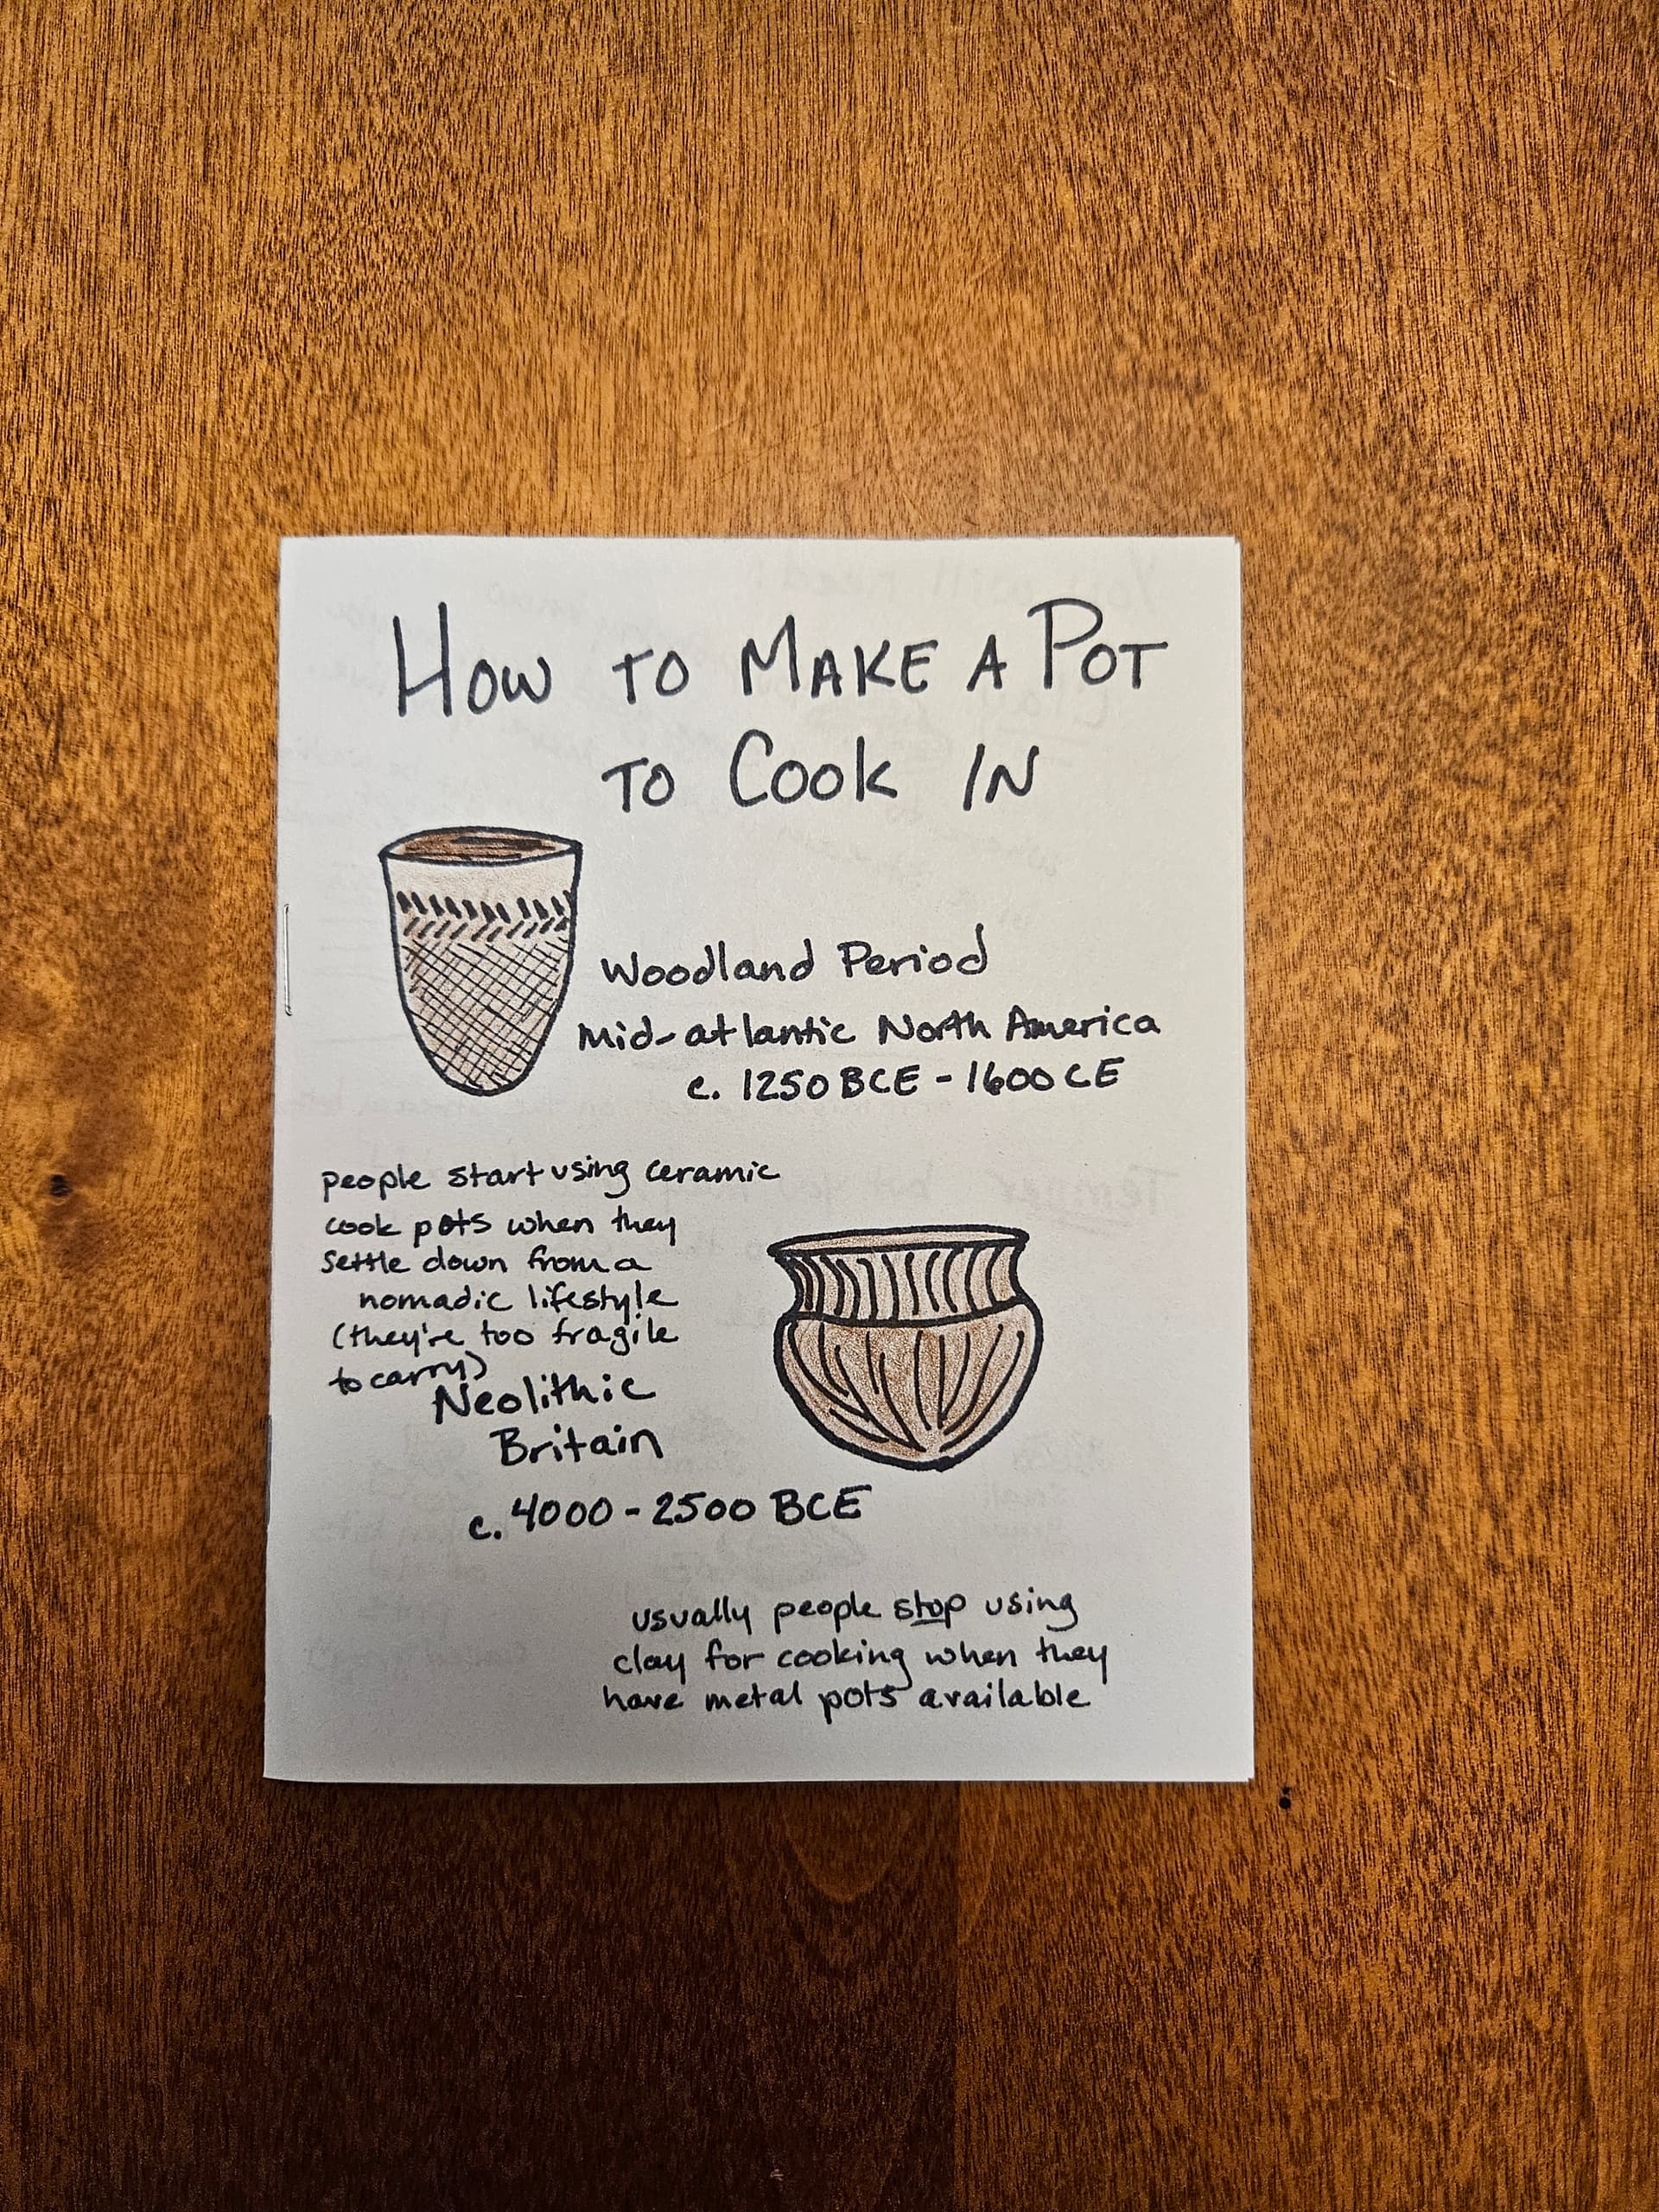 How to Make A Pot
to Cook IN
Woodland Period
Mid-atlantic North America
c. 1250 BCE - 1600 CE
people start using ceramic
cook pots when they
settle down from a
nomadic lifestyle
(they're too fragile
to carry)
Neolithic
Britain
c. 4000 - 2500 BCE
usually people stop using
clay for cooking when they
have metal pots available